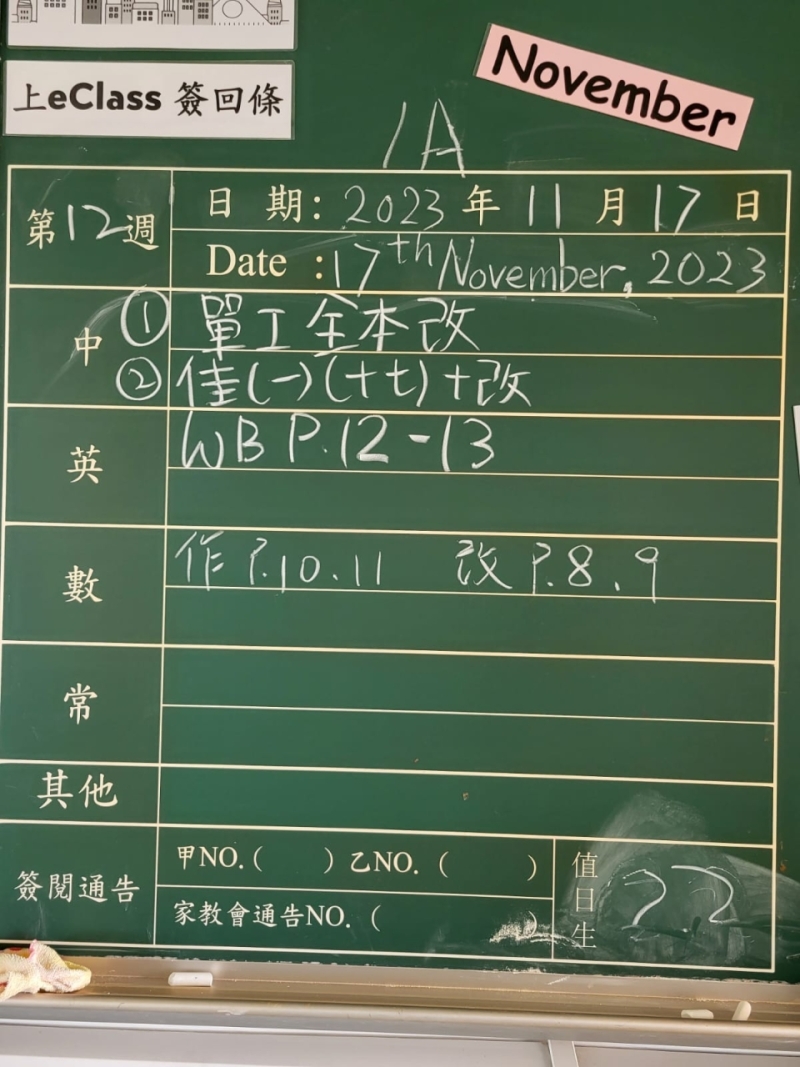 上eClass 簽回條
November
1A
第12週
日 期: 2023 年 11 月 17 日
Date : 17th November, 2023
中
① 單工全本改
② 佳(一)(十七)+改
英
WB P.12-13
數
作 P.10、11 改 P.8、9
常
其他
簽閱通告
甲NO.( ) 乙NO. ( )
家教會通告NO. ( )
值日生
22